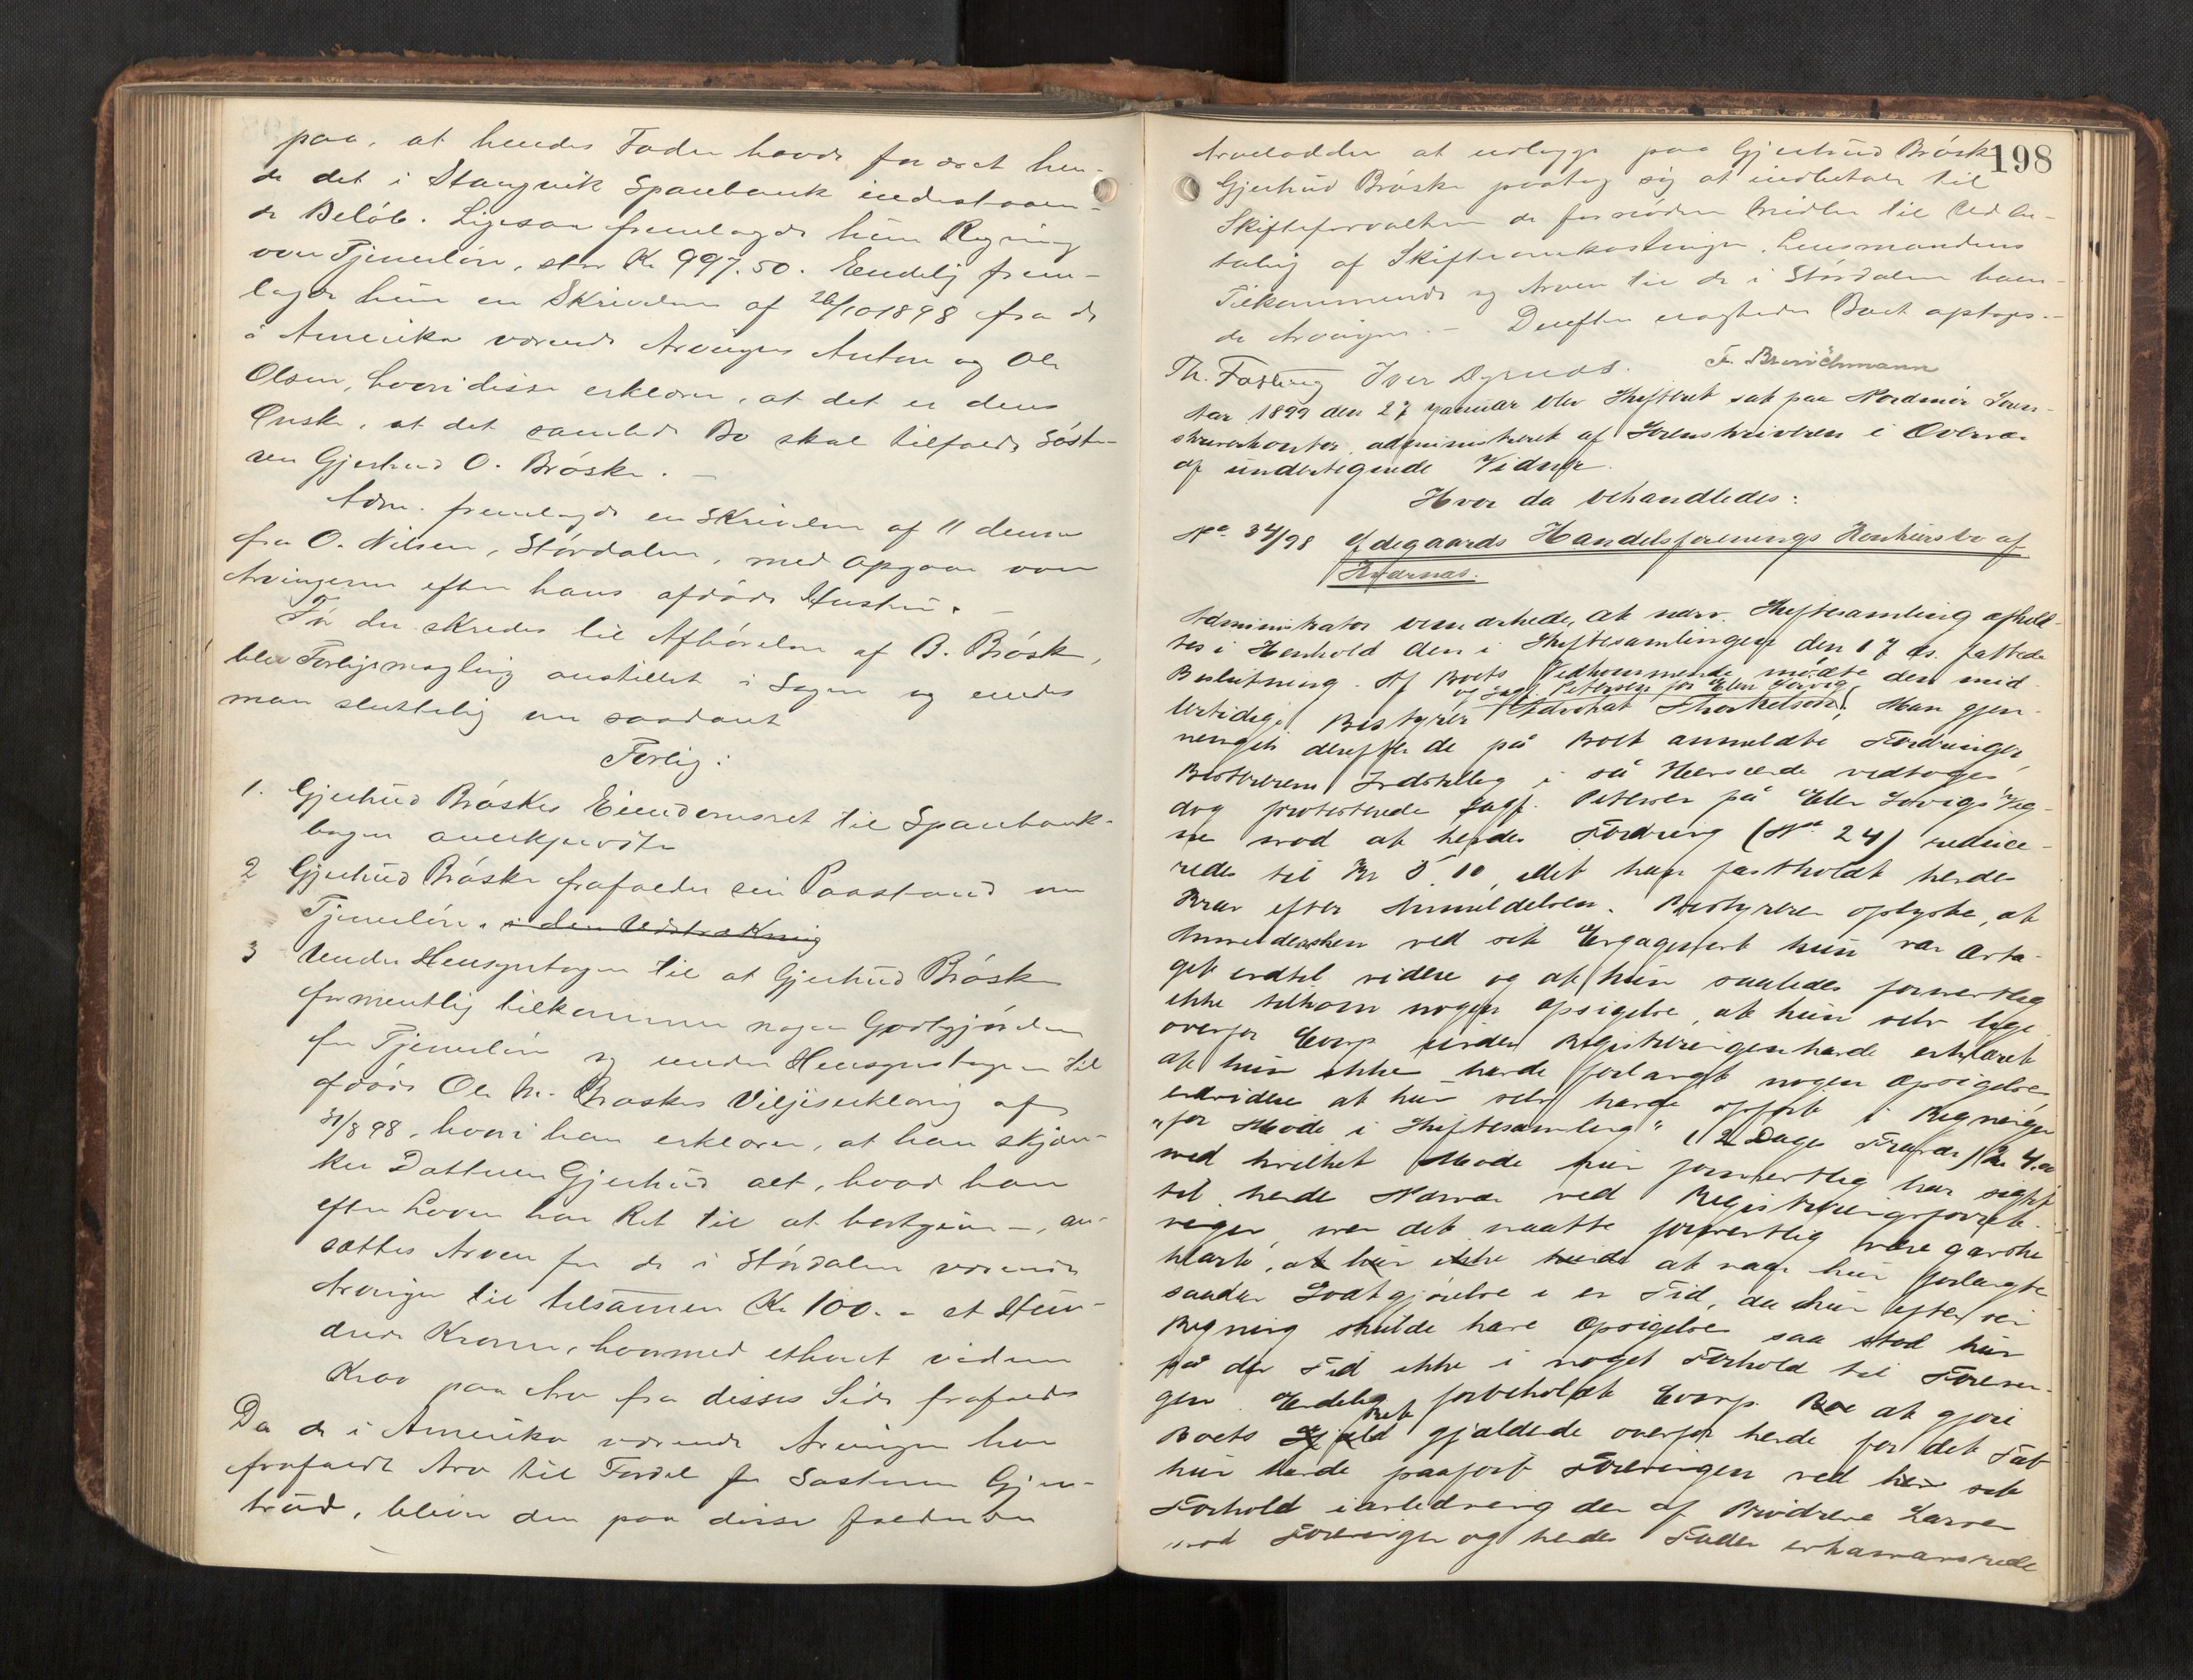 paa, at hendes Fader havde foræret hen-
de det i Stangvik Sparebank indestaaen-
de Beløb. Ligesaa fremlagde hun Regning
over Tjenerløn, stor Kr 997.50. Endelig frem-
lagde hun en Skrivelse af 26/10 1898 fra de
i Amerika værende Arvinger Anton og Ole
Olsen, hvori disse erklærer, at det er deres
Ønske, at det samlede Bo skal tilfalde Søste-
ren Gjertrud O. Brøske. –
Adm. fremlagde en Skrivelse af 11 dennes
fra O. Nilsen, Størdalen, med Opgave over
Arvingerne efter hans afdøde Hustru. –
Før der skredes til Afhørelse af B. Brøske,
blev Forligsmægling anstillet i Sagen og enedes
man sluttelig om saadant
Forlig:
1. Gjertrud Brøskes Eiendomsret til Sparebank-
bogen anerkjendtes
2 Gjertrud Brøske frafalder sin Paastand om
Tjenerløn. i den Udstrækning
3 Under Hensyntagen til at Gjertrud Brøske
formentlig tilkommer nogen Godtgjørelse
for Tjenerløn og under Hensyntagen til
afdøde Ole M. Brøskes Viljeserklæring af
31/8 98, hvori han erklærer, at han skjæn-
ker Datteren Gjertrud alt, hvad han
efter Loven har Ret til at bortgive –, an-
sættes Arven for de i Størdalen værende
Arvinger til tilsammen Kr 100. – et Hun-
drede Kroner, hvormed ethvert videre
Krav paa Arv fra disses Side frafaldes
Da de i Amerika værende Arvinger har
frafaldt Arv til Fordel for Søsteren Gjer-
trud, bliver den paa disse faldende
198
Arvelodder at udlægge paa Gjertrud Brøske
Gjertrud Brøske paatog sig at indbetale til
Skifteforvalteren de fornødne Midler til Udbe-
taling af Skifteomkostninger, Lensmandens
Tilkommende og Arven til de i Størdalen boen-
de Arvinger. – Derefter eragtedes Boet optaget. –
Th. Fasting Iver Dyrnes. F. Brinchmann
Aar 1899 den 27 Januar blev Skifteret sat paa Nordmør Soren-
skriverkontor, administreret af Sorenskriveren i Overvær
af undertegnede Vidner.
Hvor da behandledes:
No 34/98 Ødegaards Handelsforenings Konkursbo af
Kvernæs.
Administrator bemærkede, at nærv. Skiftesamling afhold-
tes i Henhold den i Skiftesamlingen den 17 ds. fattede
Beslutning. Af Boets Vedkommende mødte den mid-
og Sagf. Petersen for Ellen Løvig
lertidige Bestyrer Advokat Thorkelson. Man gjen-
nemgik derefter de på Boet anmeldte Fordringer,
Bestyrerens Indstilling i så Henseende vedtoges,
dog protesterede Sagf. Petersen på Ellen Løvigs Veg-
ne mod at hendes Fordring (No 24) reduce-
redes til Kr 5,10, idet han fastholdt hendes
Krav efter Anmeldelsen. Bestyreren oplyste, at
Anmeldersken ved sit Engagement hun var anta-
get indtil videre og at hun saaledes formentlig
ikke tilkom nogen Opsigelse, at hun selv lige
overfor Comp. under Registreringen havde erklæret
at hun ikke havde forlangt nogen Opsigelse
endvidere at hun selv havde opført i Regningen
"for Møde i Skiftesamling" (2 Dage Fravær) Kr 4.00
med hvilket Møde hun formentlig har sigtet
til hendes Nærvær ved Registreringsforret-
ningen, men det maatte formentlig være ganske
klart, at hun ikke havde at naar hun forlangte
saadan Godtgjørelse i en Tid, da hun efter sin
Regning skulde have Opsigelse saa stod hun
på den Tid ikke i noget Forhold til Forenin-
gen. Endelig forbeholdt Comp. Boe at gjøre
Ret
Boets gjældende overfor hende for det Tab
hun havde paaført Foreningen ved hun sit
Forhold i anledning den af Brødrene Larsen
mod Foreningen og hendes Fader